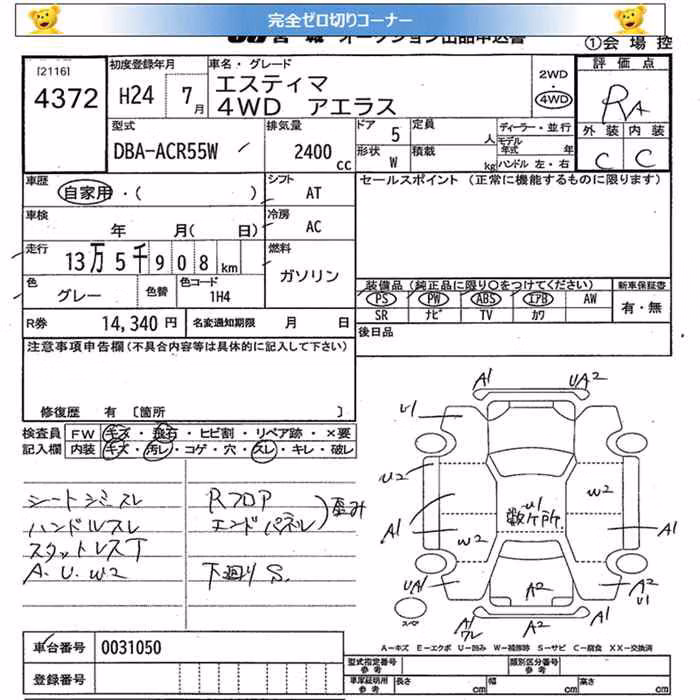 完全ゼロ切りコーナー
オークション出品申込書
①会場控
[2116]
4372
初度登録年月
H24 7月
車名・グレード
エスティマ
4WD アエラス
2WD
・
4WD
評価点
RA
外装 内装
C C
型式
DBA-ACR55W
排気量
2400cc
ドア 5
定員 人
形状 W
積載 kg
ディーラー・並行
モデル年式 年
ハンドル 左・右
車歴
自家用・( )
シフト
AT
車検
年 月( 日)
冷房
AC
走行
13万5千908km
燃料
ガソリン
色
グレー
色替
色コード
1H4
R券 14,340円
名変通知期限 月 日
セールスポイント (正常に機能するものに限ります)
装備品(純正品に限り○をつけてください)
新車保証書
PS PW ABS エアB AW
有・無
SR ナビ TV カワ
後日品
注意事項申告欄(不具合内容等は具体的に記入して下さい)
修復歴 有 [箇所 ]
検査員記入欄
FW キズ・飛石・ヒビ割・リペア跡・×要
内装 キズ・汚レ・コゲ・穴・スレ・キレ・破レ
シートシミスレ
ハンドルスレ
スタットレスT
A.U.W2
Rフロア
エンドパネル
歪み
下廻りS.
A1
UA2
U1
U2
W2
A1
U1
数ケ所
W2
A1
UA1
A2
A2
U1
A1
ワレ
A2
スペア
A−キズ E−エクボ U−凹み W−補修跡 S−サビ C−腐食 XX−交換済
車台番号 0031050
登録番号
型式指定番号
参考
類別区分番号
参考
車庫証明用
参考
長さ cm
幅 cm
高さ cm